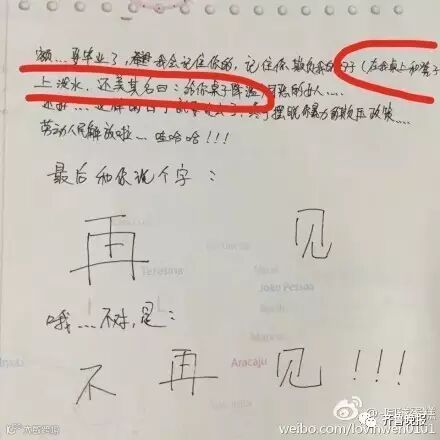 额....要毕业了，我会记住你的，记住你欺负我的日子（在我桌上和凳子
上泼水，还美其名曰：给你桌子降温 可恶的女人....
劳动人民解放啦... 哇哈哈！！！
最后和你说个字：
再 见
哦....不对，是：
不 再 见！！！
Teresina
Natal
João Pessoa
Maceió
Aracaju
齐鲁晚报
weibo.com/lovinwen0101